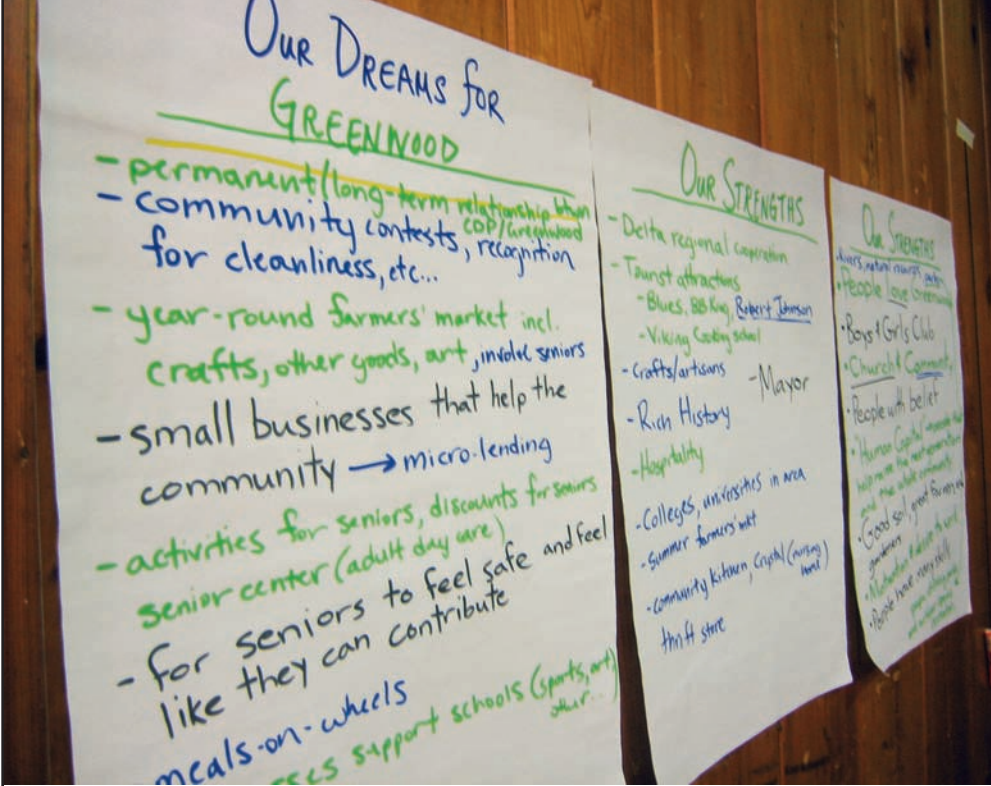 OUR DREAMS FOR
GREENWOOD
- permanent/long-term relationship btwn
COP/Greenwood
- community contests, recognition
for cleanliness, etc...
- year-round farmers' market incl.
crafts, other goods, art, involve seniors
- small businesses that help the
community → micro-lending
- activities for seniors, discounts for seniors
senior center (adult day care)
- for seniors to feel safe and feel
like they can contribute
meals-on-wheels
support schools (sports, art,
other...)
OUR STRENGTHS
- Delta regional cooperation
- Tourist attractions
- Blues, BB King, Robert Johnson
- Viking Cooking School
- Crafts/artisans
- Mayor
- Rich History
- Hospitality
- Colleges, universities in area
- Summer farmers' mkt
- community kitchen, Crystal (nursing
home)
thrift store
OUR STRENGTHS
People love Greenwood
· Boys & Girls Club
· Church &
· People with belief
· "Human Capital"
and the whole community
· Good soil, great farmers,
gardeners
· Motivation & desire to work
· People have many skills